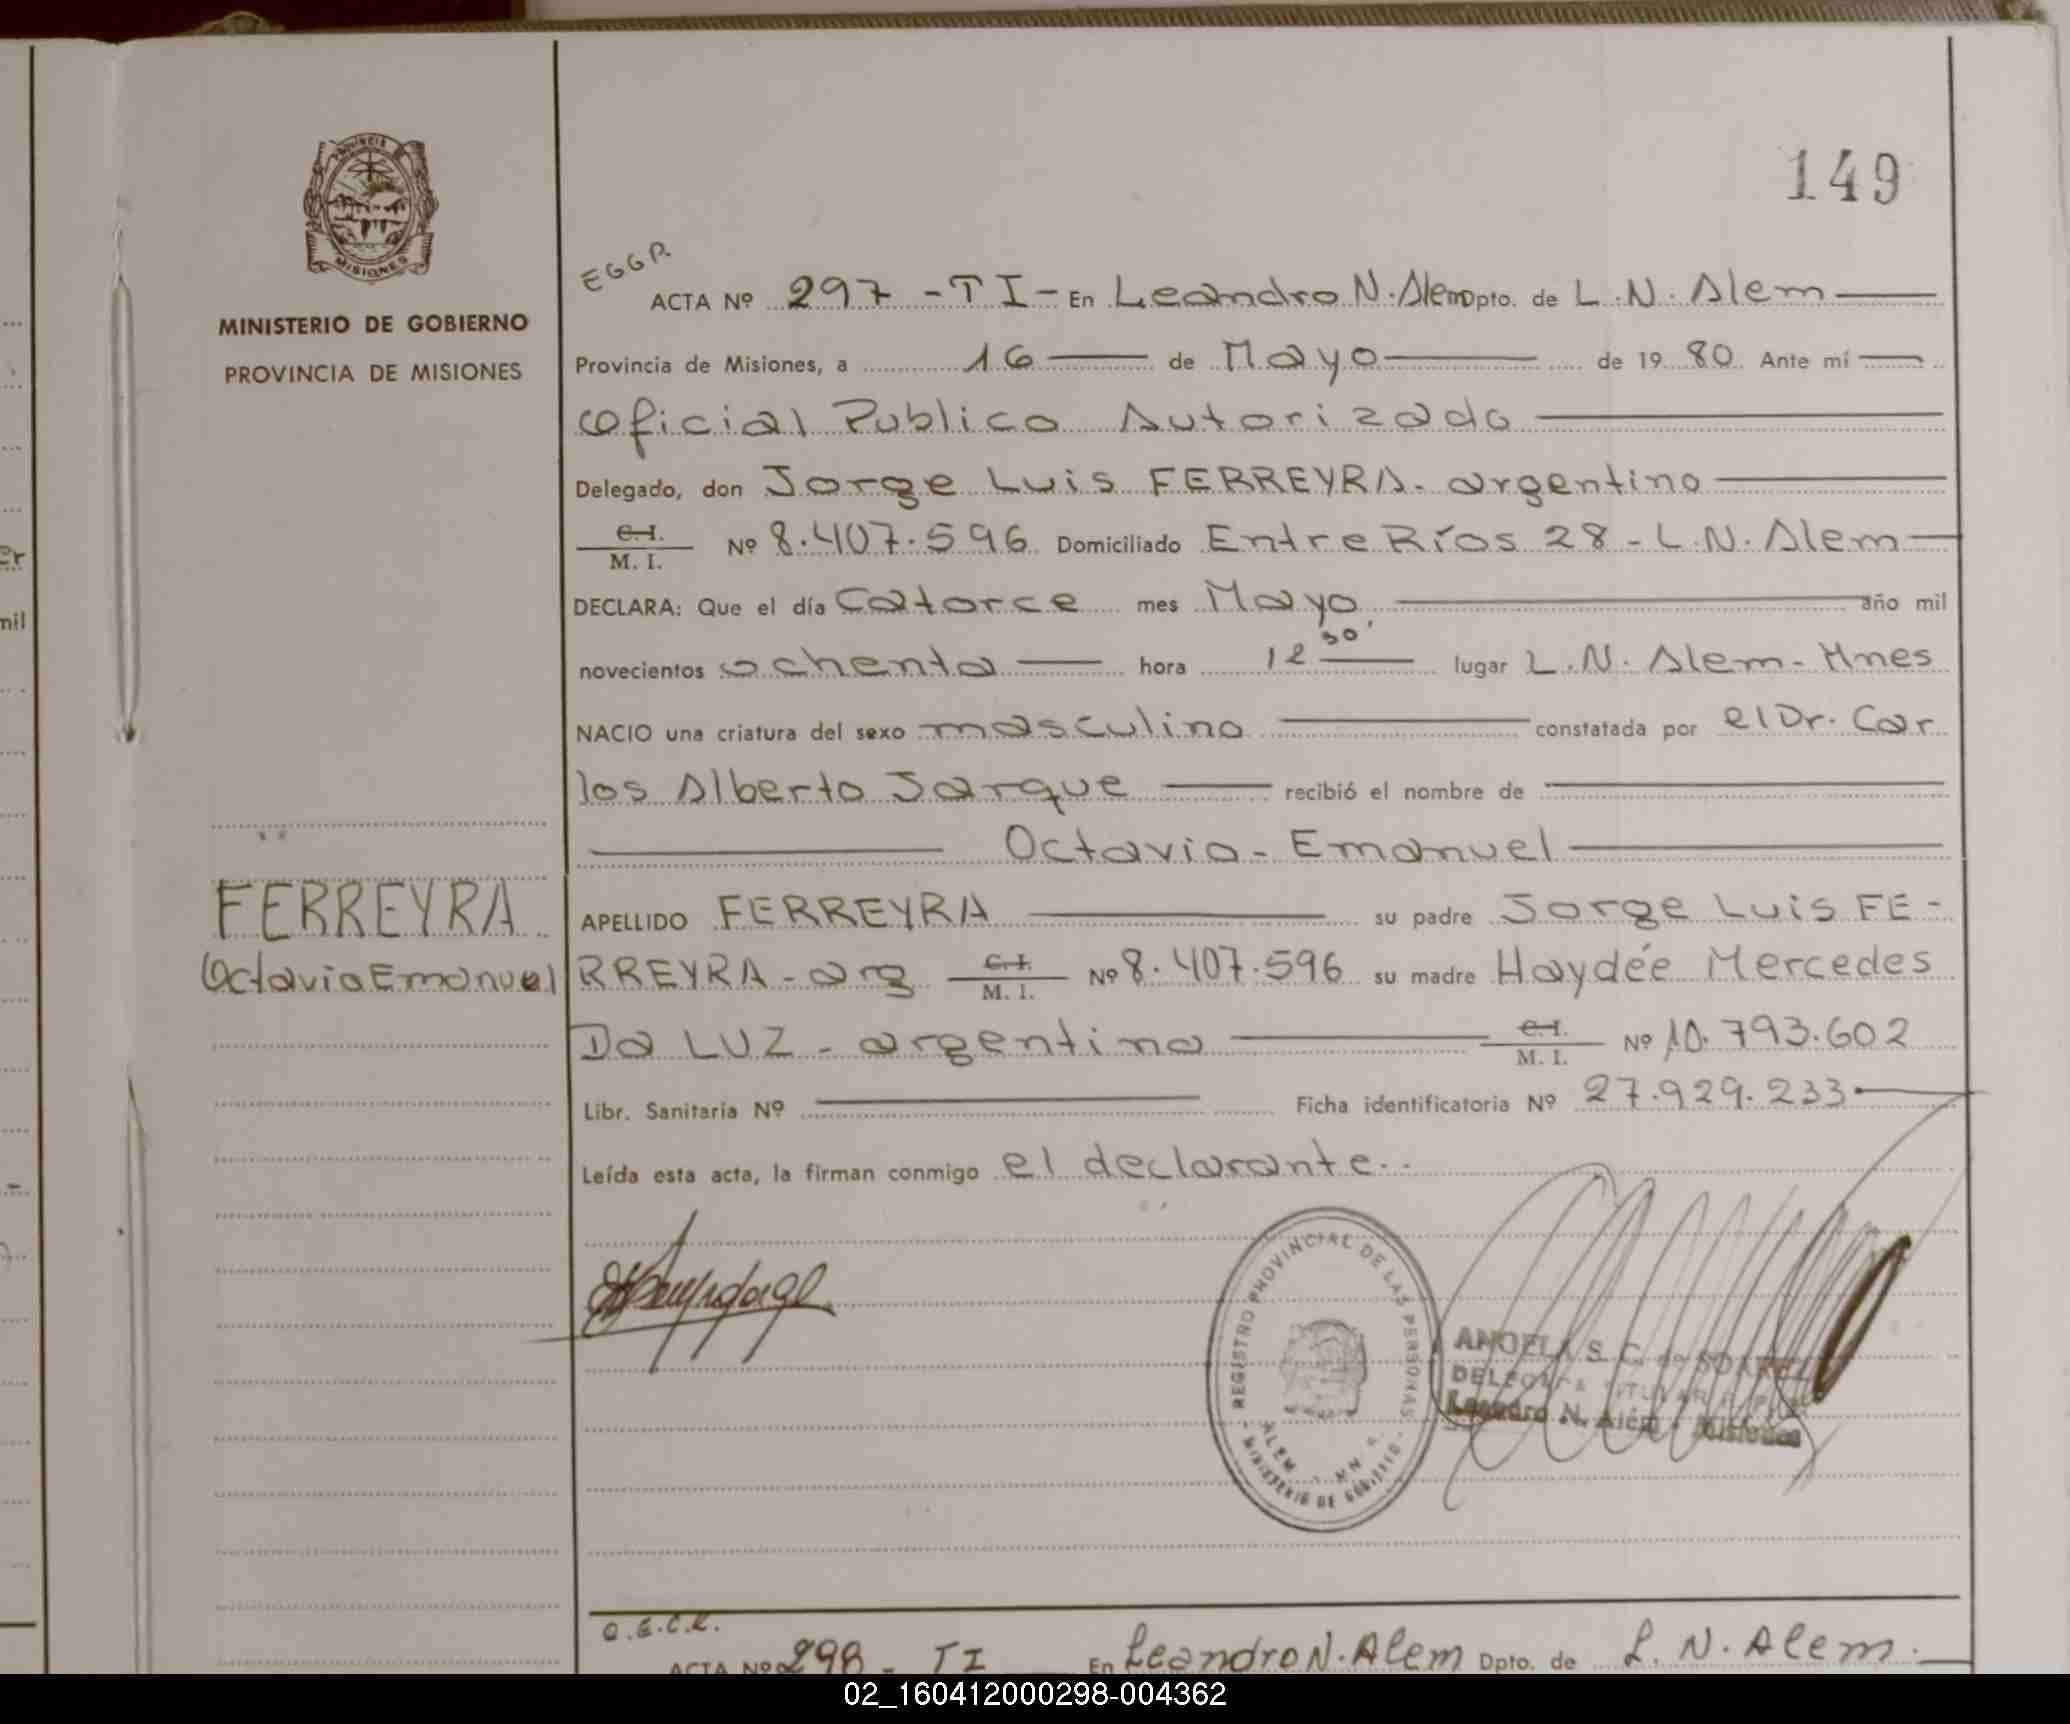 149
PROVINCIA
MISIONES
MINISTERIO DE GOBIERNO
PROVINCIA DE MISIONES
EGGR
ACTA Nº 297 - T I - En Leandro N. Alem Dpto. de L. N. Alem
Provincia de Misiones, a 16 de Mayo de 19 80 Ante mí
Oficial Publico Autorizado
Delegado, don Jorge Luis FERREYRA - argentino
C.I. M. I. Nº 8.407.596 Domiciliado Entre Ríos 28 - L.N. Alem
DECLARA: Que el día Catorce mes Mayo año mil
novecientos ochenta hora 12 30' lugar L.N. Alem - Mnes
NACIO una criatura del sexo masculino constatada por el Dr. Car
los Alberto Jarque recibió el nombre de
Octavio - Emanuel
FERREYRA
Octavio Emanuel
APELLIDO FERREYRA su padre Jorge Luis FE-
RREYRA - arg C.I. M. I. Nº 8.407.596 su madre Haydée Mercedes
Da LUZ - argentina C.I. M. I. Nº 10.793.602
Libr. Sanitaria Nº Ficha identificatoria Nº 27.929.233
Leída esta acta, la firman conmigo el declarante.
REGISTRO PROVINCIAL DE LAS PERSONAS
ALEM - MNES.
MINISTERIO DE GOBIERNO
ANGELA S. C. de SOAREZ
DELEGADA TITULAR
Leandro N. Alem - Misiones
O.G.C.R.
ACTA Nº 298 - TI En Leandro N. Alem Dpto. de L. N. Alem.
er
mil
02_160412000298-004362